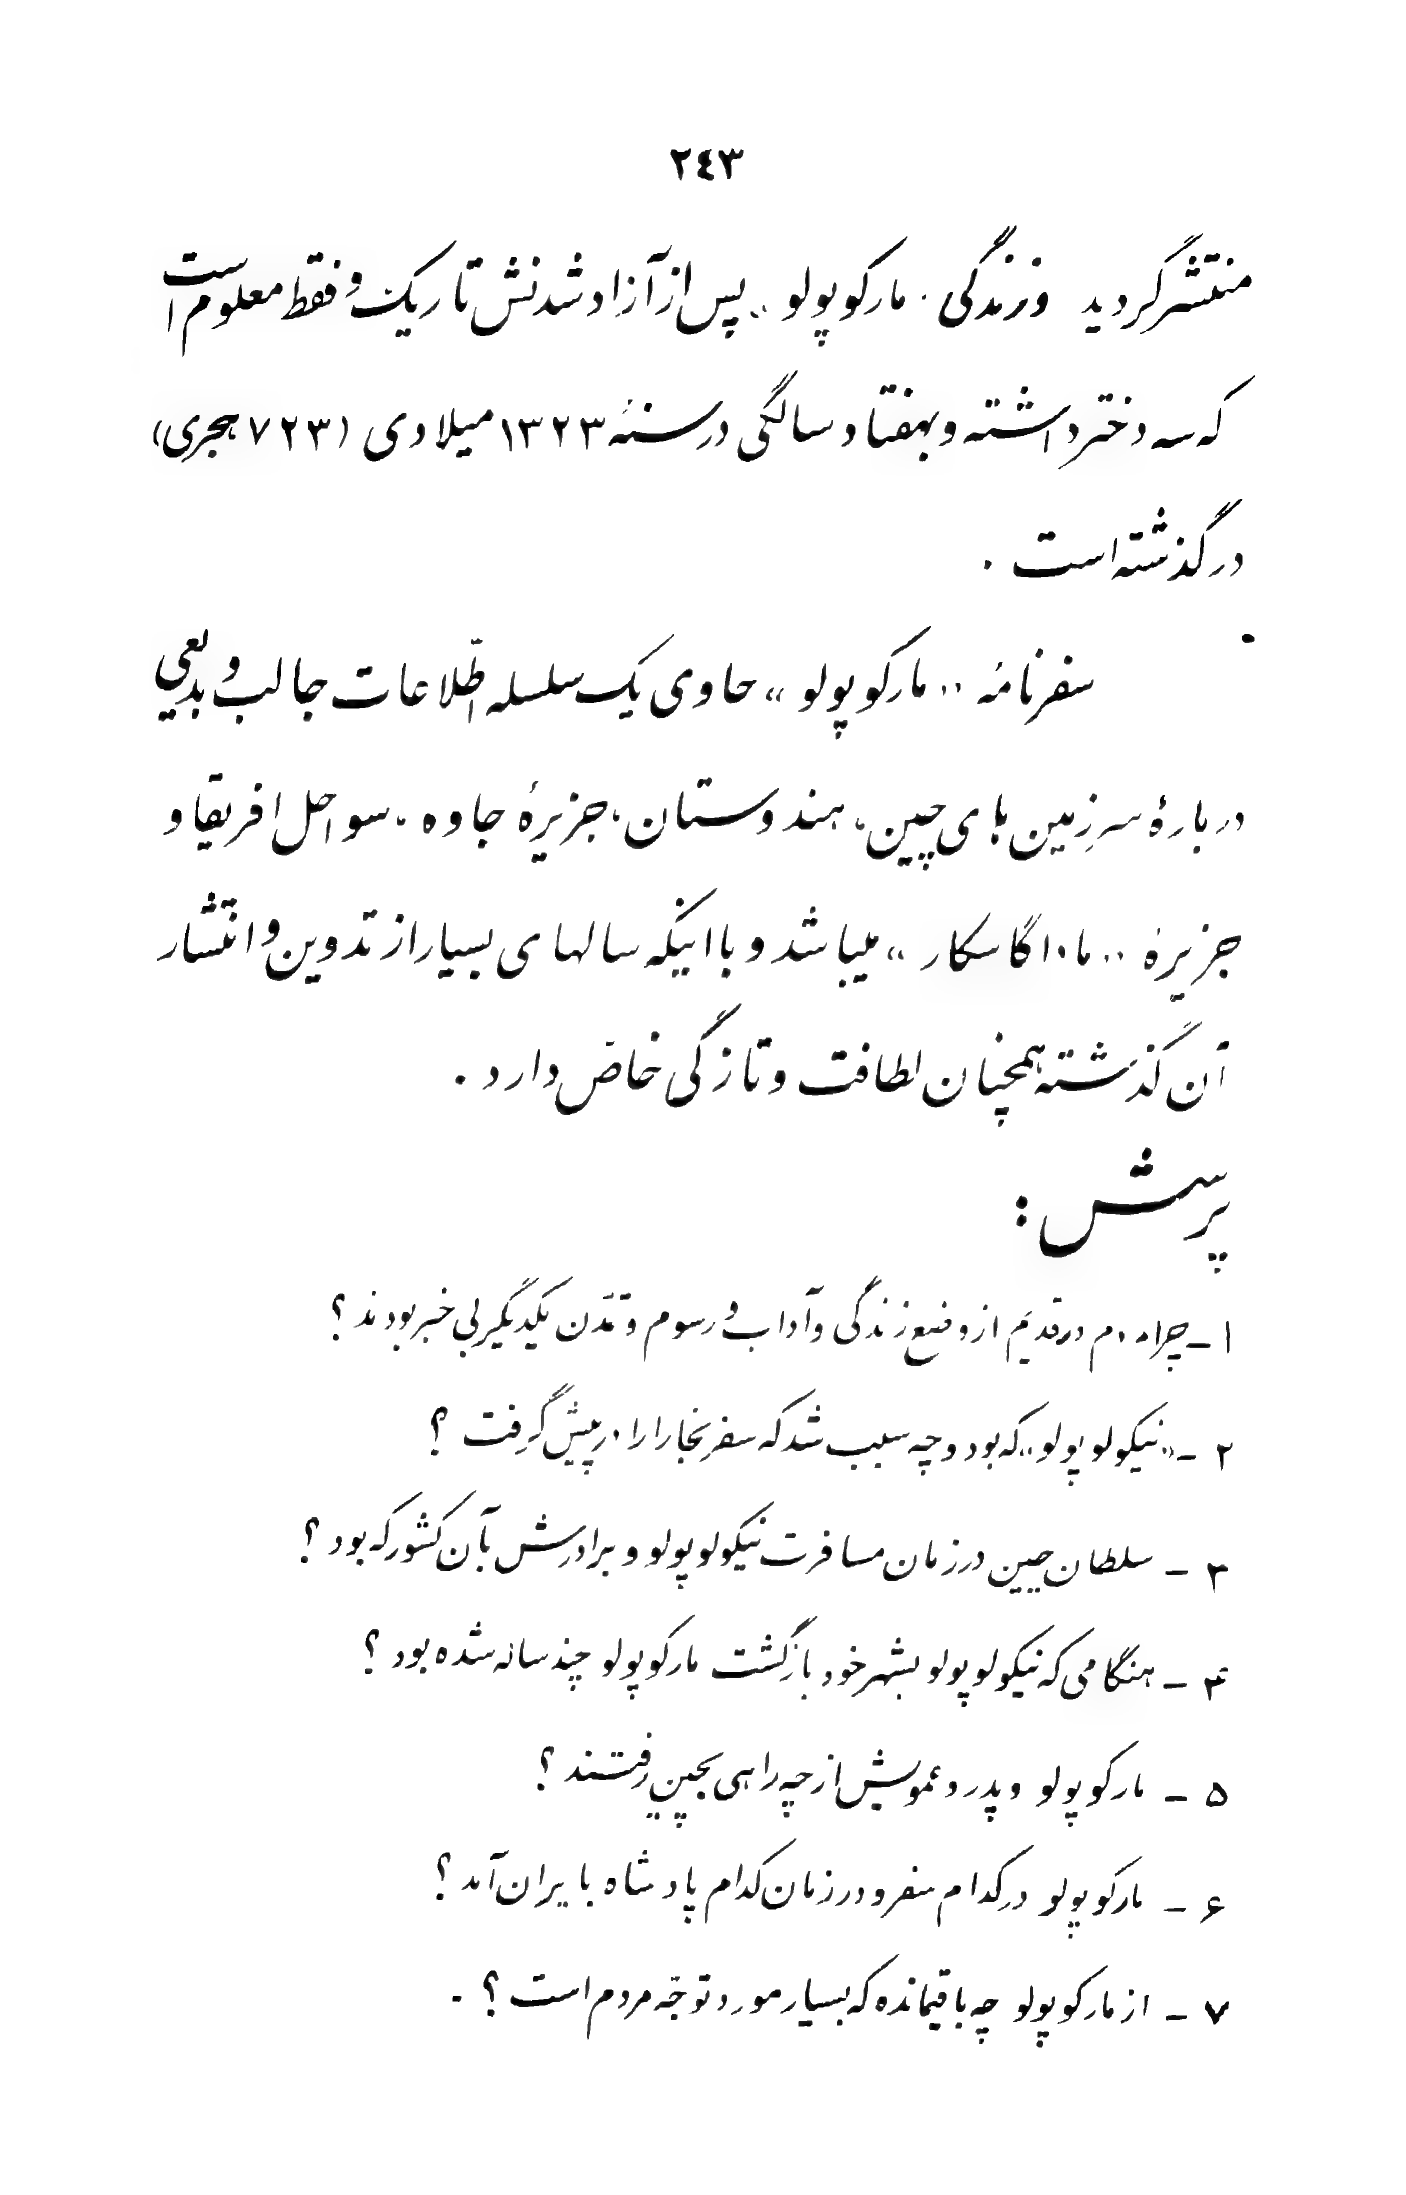 ٢٤٣
منتشر گردید و زندگی «مارکوپولو» پس از آزاد شدنش تاریک و فقط معلوم است
که سه دختر داشته و بهفتاد سالگی در سنهٔ ۱۳۲۳ میلادی (۷۲۳ هجری)
درگذشته است .
سفرنامهٔ «مارکوپولو» حاوی یک سلسله اطّلاعات جالب و بدیعی
دربارهٔ سرزمین های چین، هندوستان، جزیرهٔ جاوه، سواحل افریقا و
جزیرهٔ «ماداگاسکار» میباشد و با اینکه سالهای بسیار از تدوین و انتشار
آن گذشته همچنان لطافت و تازگی خاصّ دارد .
پرسش :
۱ - چرا مردم در قدیم از وضع زندگی و آداب و رسوم و تمّدن یکدیگر بی خبر بودند ؟
۲ - «نیکولو پولو» که بود و چه سبب شد که سفر بخارا را در پیش گرفت ؟
۳ - سلطان چین در زمان مسافرت نیکولو پولو و برادرش بآن کشور که بود ؟
۴ - هنگامی که نیکولو پولو بشهر خود بازگشت مارکوپولو چند ساله شده بود ؟
۵ - مارکوپولو و پدر و عمویش از چه راهی بچین رفتند ؟
۶ - مارکوپولو در کدام سفر و در زمان کدام پادشاه بایران آمد ؟
۷ - از مارکوپولو چه باقیمانده که بسیار مورد توجّه مردم است ؟ -